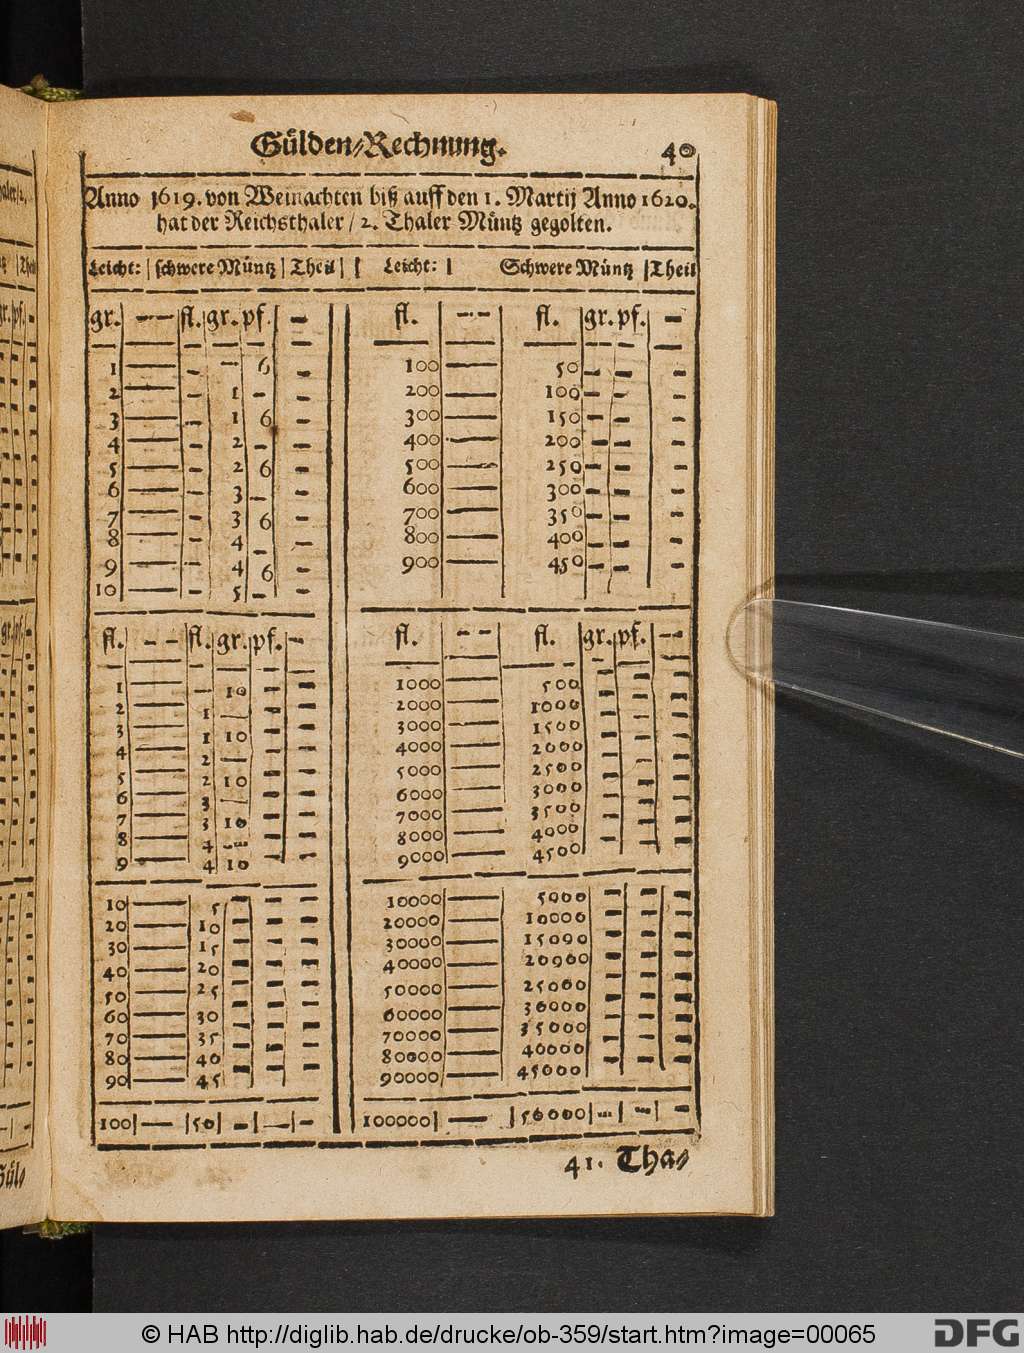 Gülden-Rechnung. 40
Anno 1619. von Weinachten biß auff den 1. Martij Anno 1620.
hat der Reichsthaler / 2. Thaler Müntz gegolten.
Leicht: | schwere Müntz | Theil | | Leicht: | Schwere Müntz | Theil
gr. — — fl. gr. pf. — fl. — — fl. gr. pf. —
1 — — — 6 — 100 — 50 — — —
2 — — 1 — — 200 — 100 — — —
3 — — 1 6 — 300 — 150 — — —
4 — — 2 — — 400 — 200 — — —
5 — — 2 6 — 500 — 250 — — —
6 — — 3 — — 600 — 300 — — —
7 — — 3 6 — 700 — 350 — — —
8 — — 4 — — 800 — 400 — — —
9 — — 4 6 — 900 — 450 — — —
10 — — 5 — —
fl. — — fl. gr. pf. — fl. — — fl. gr. pf. —
1 — — 10 — — 1000 — 500 — — —
2 — 1 — — — 2000 — 1000 — — —
3 — 1 10 — — 3000 — 1500 — — —
4 — 2 — — — 4000 — 2000 — — —
5 — 2 10 — — 5000 — 2500 — — —
6 — 3 — — — 6000 — 3000 — — —
7 — 3 10 — — 7000 — 3500 — — —
8 — 4 — — — 8000 — 4000 — — —
9 — 4 10 — — 9000 — 4500 — — —
10 — 5 — — — 10000 — 5000 — — —
20 — 10 — — — 20000 — 10000 — — —
30 — 15 — — — 30000 — 15000 — — —
40 — 20 — — — 40000 — 20000 — — —
50 — 25 — — — 50000 — 25000 — — —
60 — 30 — — — 60000 — 30000 — — —
70 — 35 — — — 70000 — 35000 — — —
80 — 40 — — — 80000 — 40000 — — —
90 — 45 — — — 90000 — 45000 — — —
100 | — | 50 | — | — | — 100000 | — | 50000 | — | — | —
41. Tha-
© HAB http://diglib.hab.de/drucke/ob-359/start.htm?image=00065
DFG